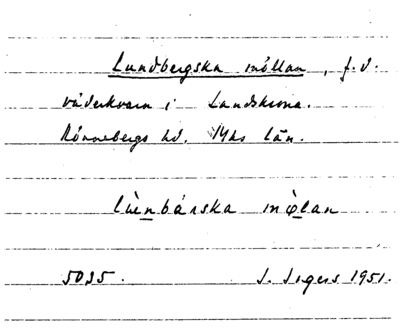 Lundbergska möllan, f.d.
väderkvarn i Landskrona.
Rönnebergs hd. Mhs län.
lùnbárska mø̀lan
5035. I. Ingers 1951.